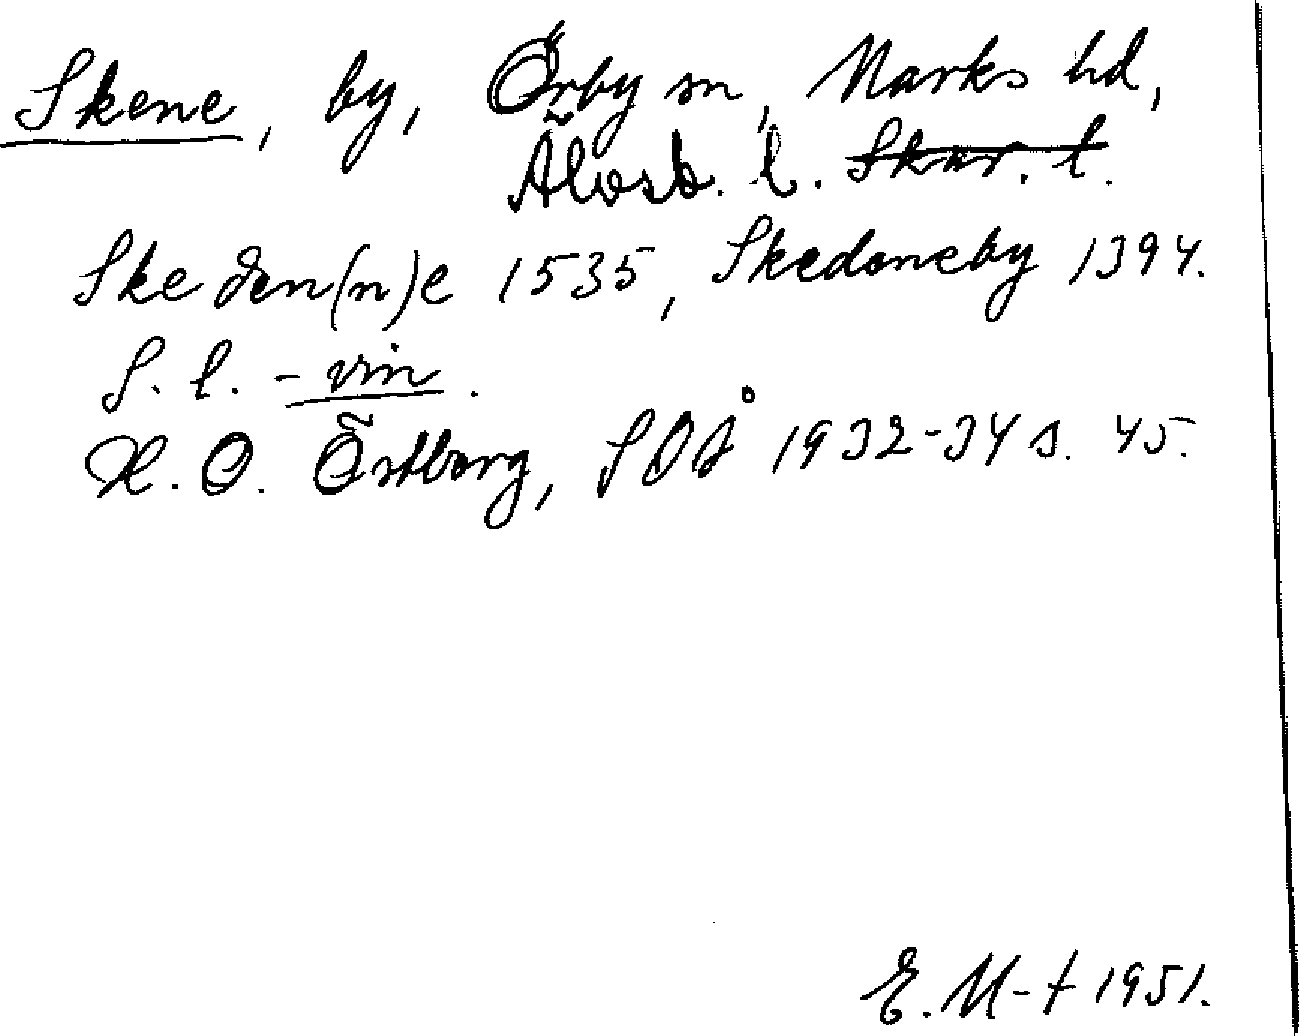 Skene, by, Örby sn, Marks hd,
Älvsb. l. Skar. l.
Skeden(n)e 1535, Skedoneby 1394.
S. l. - vin.
K. O. Östberg, SOÅ 1932-34 s. 45.
E. M-t 1951.